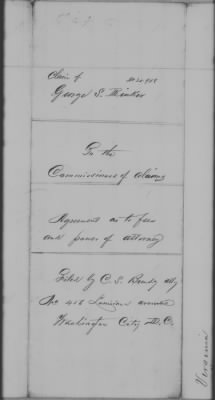 Claim of
George S.
To the
Commissioners of Claims
Agreement as to fees
and power of attorney
Filed by C. S. Bundy atty
No 418 Louisiana avenue
Washington City D.C.
Virginia